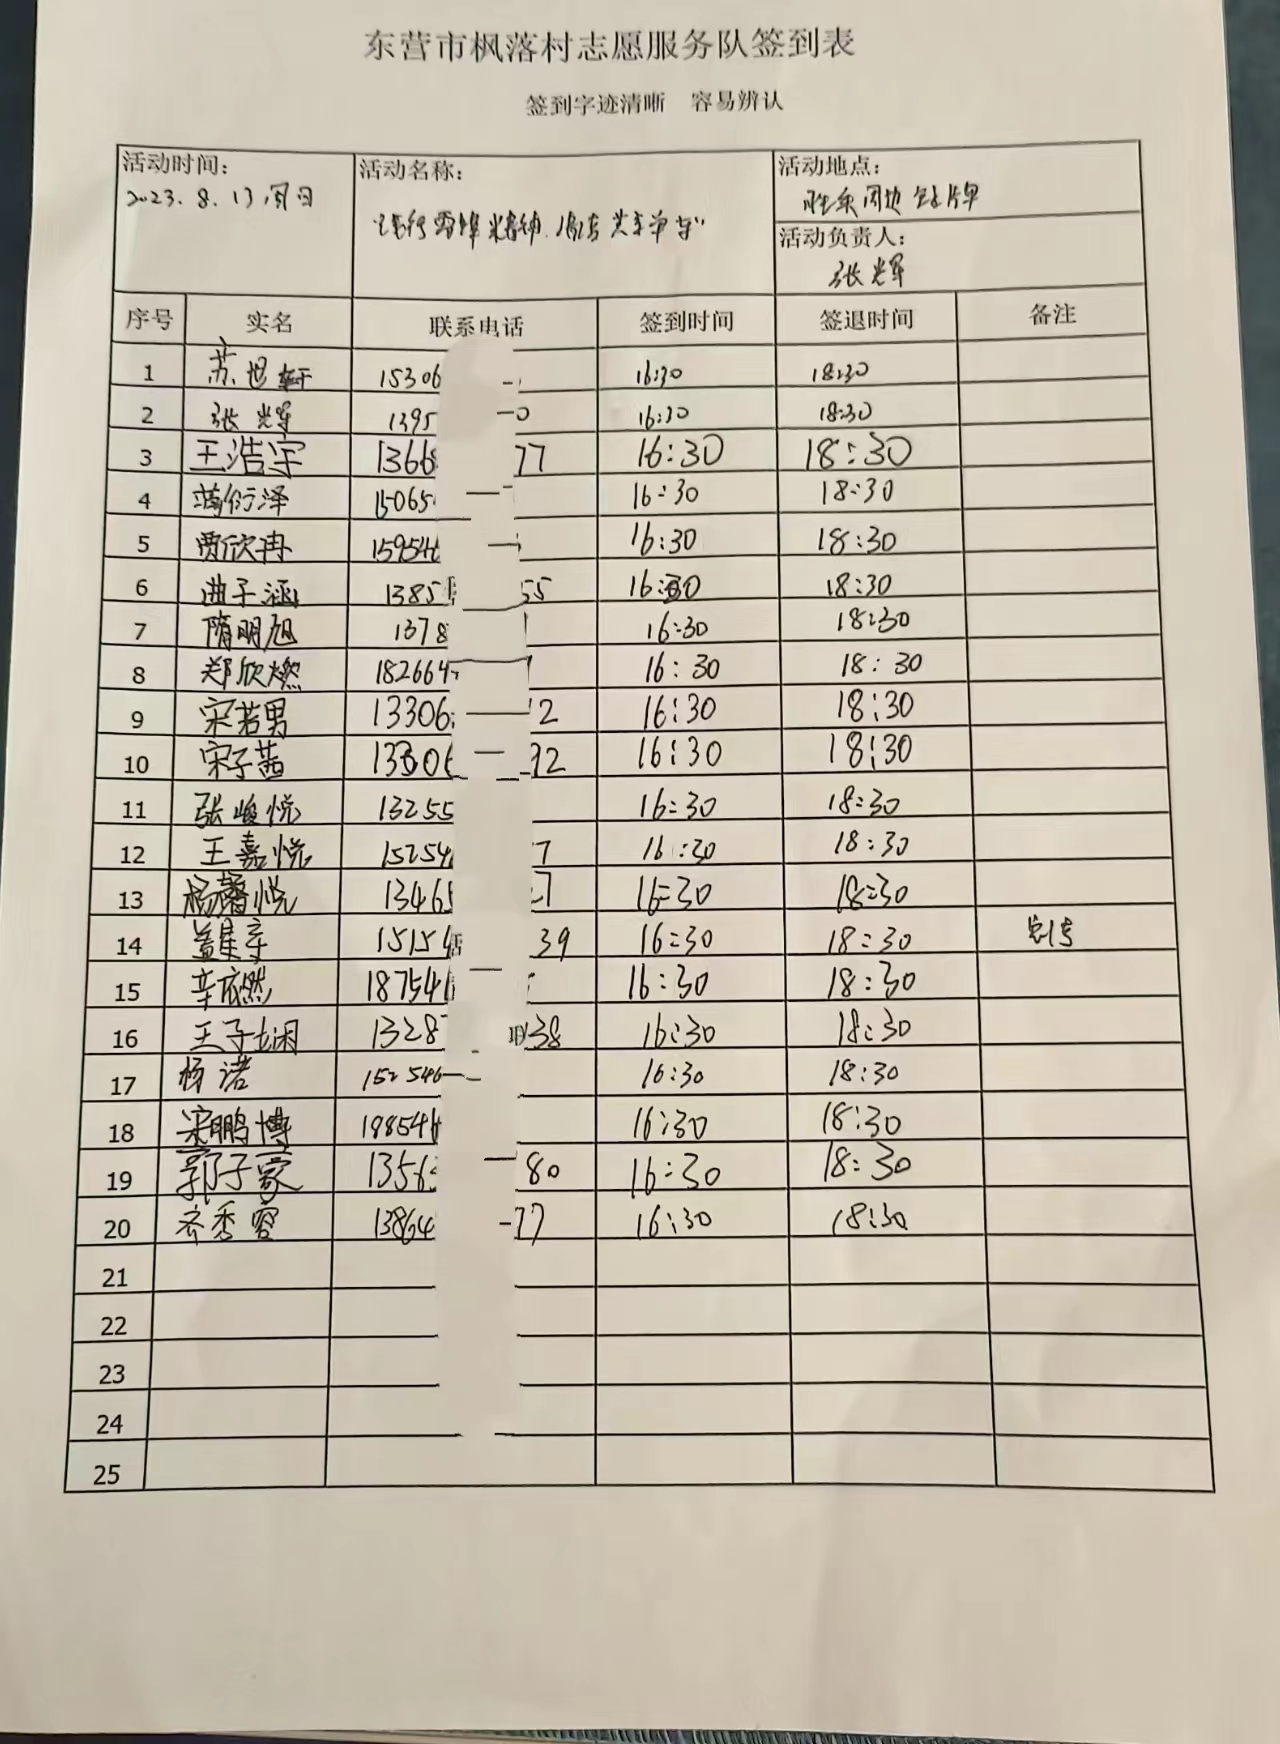 东营市枫落村志愿服务队签到表
签到字迹清晰 容易辨认
活动时间: 活动名称: 活动地点:
2023.8.13 周日 "践行雷锋精神, 清洁共享单车" 周边
活动负责人:
张光军
序号 实名 联系电话 签到时间 签退时间 备注
1 苏世轩 15306 16:30 18:30
2 张光军 1395 0 16:30 18:30
3 王浩宇 1366 77 16:30 18:30
4 蒋衍泽 15065 16:30 18:30
5 贾欣冉 159546 16:30 18:30
6 曲子涵 1385 55 16:30 18:30
7 隋明旭 1378 16:30 18:30
8 郑欣燃 182664 16:30 18:30
9 宋若男 13306 2 16:30 18:30
10 宋子茜 13306 92 16:30 18:30
11 张峻悦 13255 16:30 18:30
12 王嘉悦 15254 7 16:30 18:30
13 杨馨悦 13465 7 16:30 18:30
14 盖星辛 1515 39 16:30 18:30
15 辛依然 18754 16:30 18:30
16 王子娴 1328 38 16:30 18:30
17 杨诺 152546 16:30 18:30
18 宋鹏博 19854 16:30 18:30
19 郭子豪 1356 80 16:30 18:30
20 齐秀容 13864 77 16:30 18:30
21
22
23
24
25